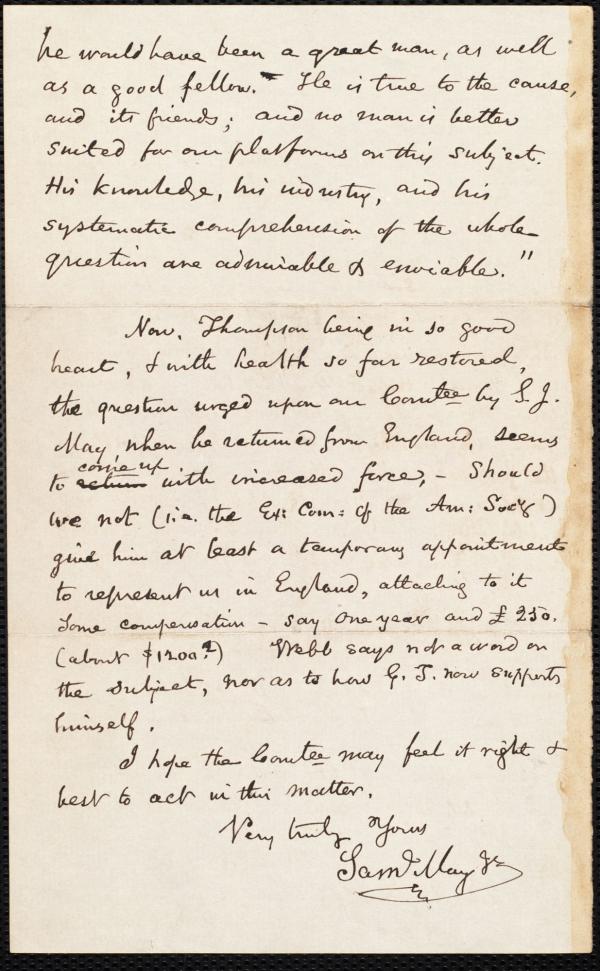 he would have been a great man, as well
as a good fellow. He is true to the cause,
and its friends; and no man is better
suited for our platforms on this subject.
His knowledge, his industry, and his
systematic comprehension of the whole
question are admirable & enviable."
Now, Thompson being in so good
heart, & with health so far restored,
the question urged upon our Comtee by S. J.
May, when he returned from England, seems
come up
to return with increased force, - Should
we not (i.e. the Ex: Com: of the Am: Socy)
give him at least a temporary appointment
to represent us in England, attaching to it
some compensation - say one year and £250.
(about $1200?) Webb says not a word on
the subject, nor as to how G. T. now supports
himself.
I hope the Comtee may feel it right &
best to act in this matter.
Very truly Yours
Saml. May Jr